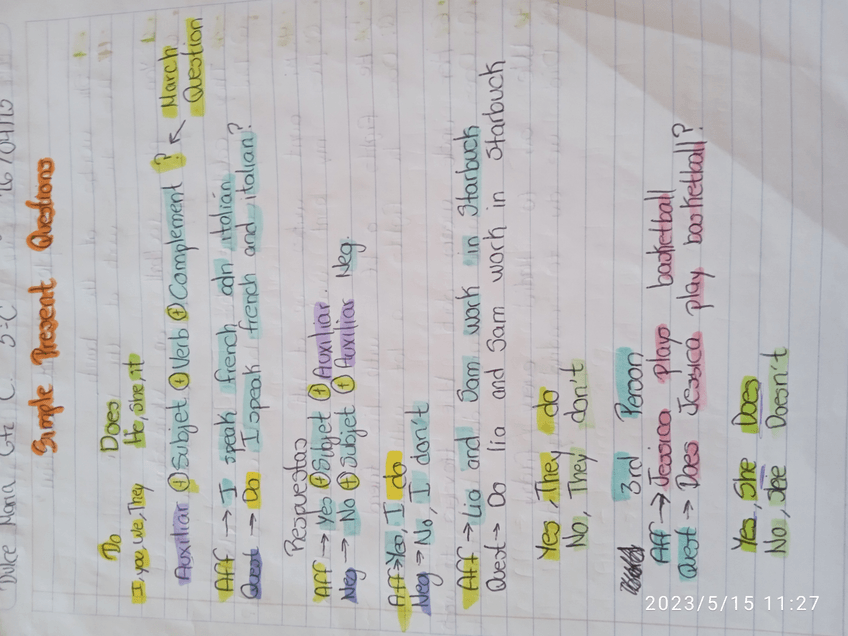 Dulce Maria Gtz C. 5-C
Simple Present Questions
Do Does
I, you, we, They He, she, it
Auxiliar + Subjet + Verb + Complement ? ← March Question
Aff → I speak french adn italian
Quest → Do I speak french and italian?
Respuestas
Aff → Yes + Subjet + Auxiliar.
Neg → No + Subjet + Auxiliar Neg.
Aff → Yes, I do
Neg → No, I don't
Aff → Lia and Sam work in Starbuck
Quest → Do lia and Sam work in Starbuck
Yes, They do
No, They don't
3rd Person
Aff → Jessica plays basketball
Quest → Does Jessica play basketball?
Yes, She Does
No, she Doesn't
2023/5/15 11:27